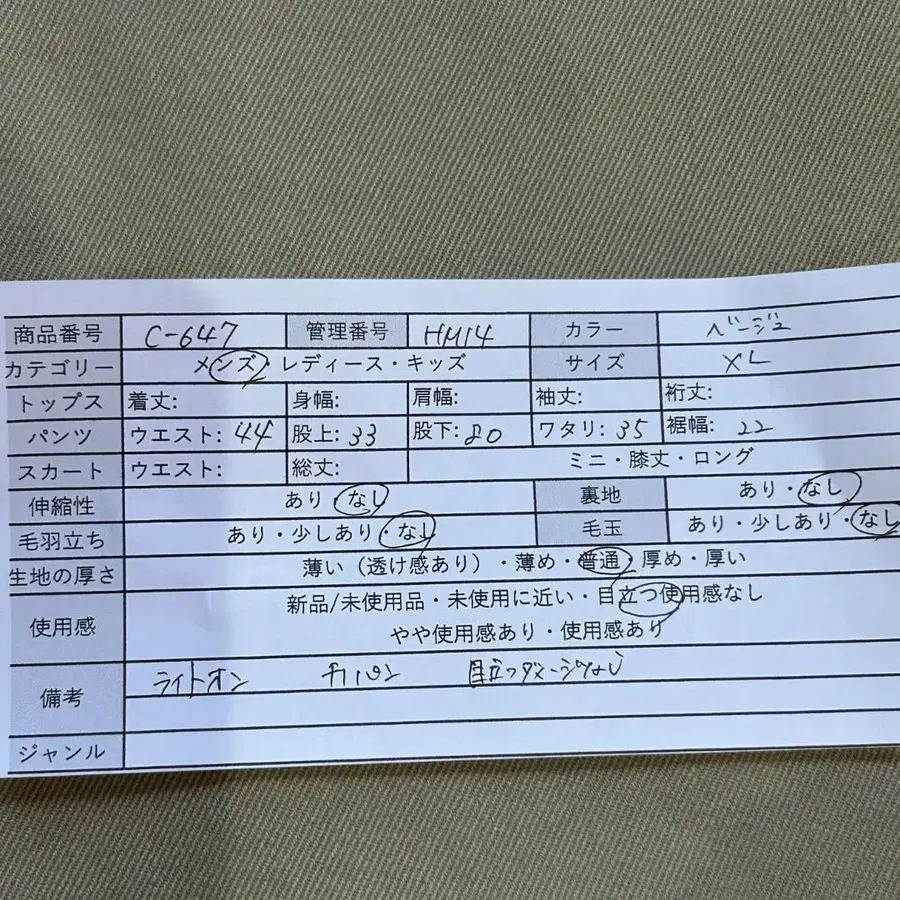 商品番号 C-647 管理番号 HM14 カラー ベージュ
カテゴリー メンズ・レディース・キッズ サイズ XL
トップス 着丈: 身幅: 肩幅: 袖丈: 裄丈:
パンツ ウエスト: 44 股上: 33 股下: 80 ワタリ: 35 裾幅: 22
スカート ウエスト: 総丈: ミニ・膝丈・ロング
伸縮性 あり・なし 裏地 あり・なし
毛羽立ち あり・少しあり・なし 毛玉 あり・少しあり・なし
生地の厚さ 薄い（透け感あり）・薄め・普通・厚め・厚い
使用感 新品/未使用品・未使用に近い・目立つ使用感なし
やや使用感あり・使用感あり
備考 ライトオン チノパン 目立つダメージなし
ジャンル